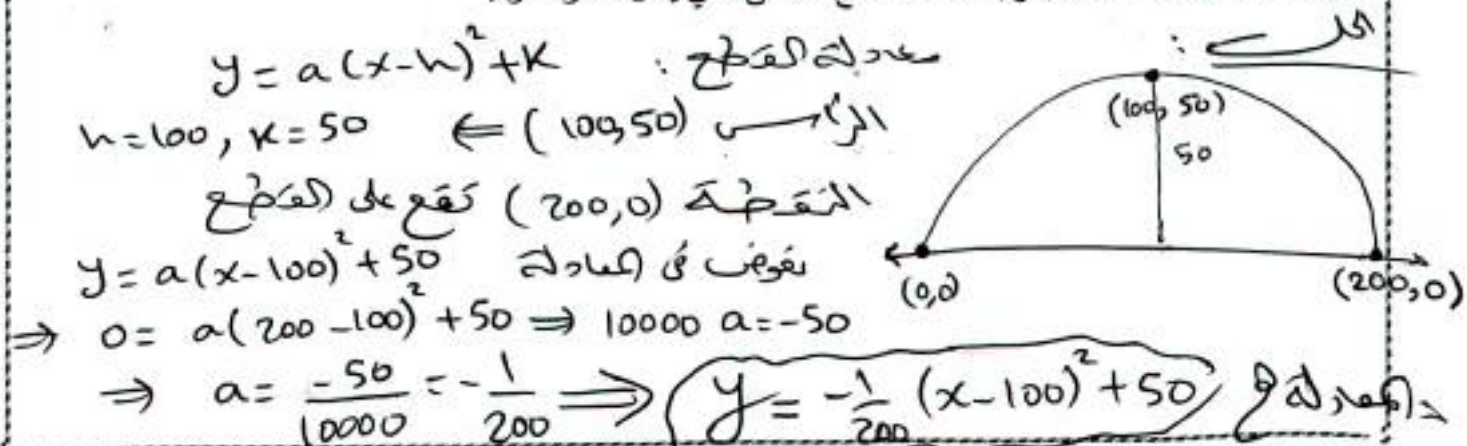 الحل :
معادلة القطع : y = a(x-h)² + K
الرأس (100,50) ⇐ h=100, K=50
النقطة (200,0) تقع على القطع
نعوض في المعادلة y = a(x-100)² + 50
⇒ 0 = a(200-100)² + 50 ⇒ 10000 a = -50
⇒ a = -50/10000 = -1/200 ⟹ y = -1/200 (x-100)² + 50
(100, 50)
50
(0,0)
(200,0)